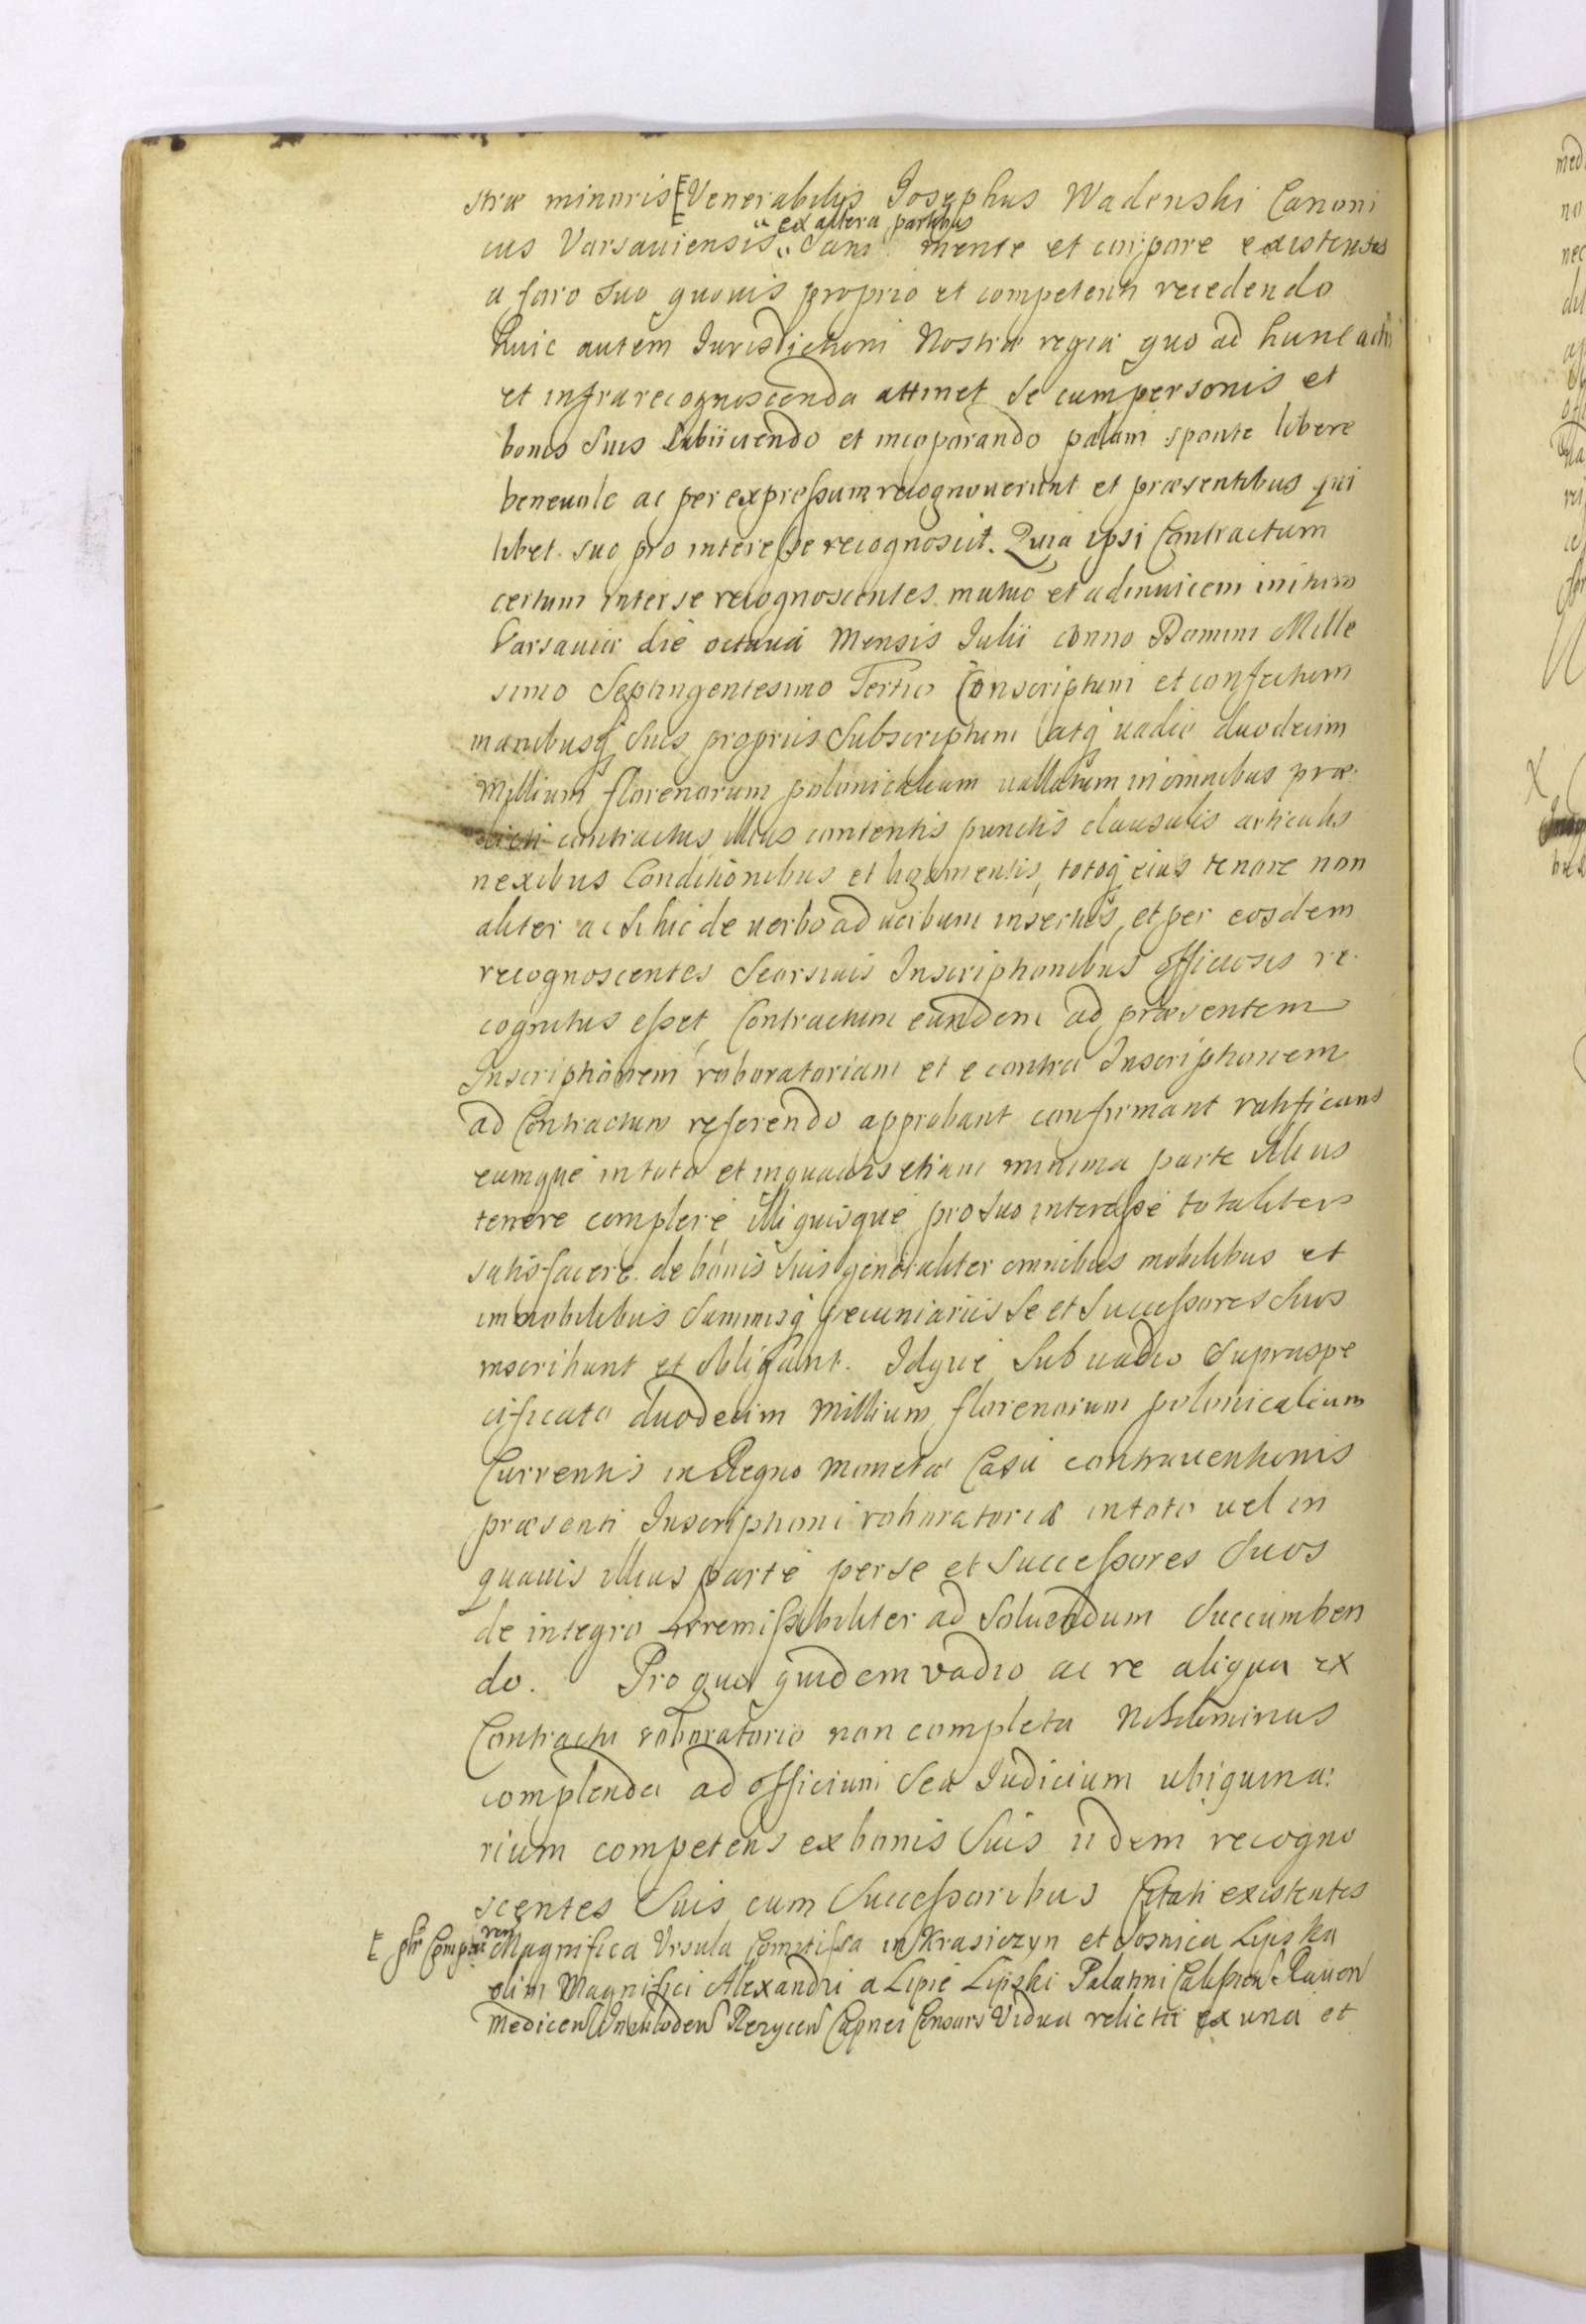 stræ minoris [Venerabilis Josephus Wadenski Canoni
" ex altera partibus
cus Varsauiensis " Sani mente et corpore existentes
a foro suo quouis proprio et competenti recedendo
huic autem Jurisdictioni Nostræ regiæ quo ad hunc actū
et infrarecognoscenda attinet se cum personis et
bonis suis subiiciendo et incorporando palam sponte libere
beneuole ac per expressum recognouerunt et præsentibus qui
libet suo pro interesse recognoscit. Quia ipsi Contractum
certum inter se recognoscentes mutuo et adinuicem initum
Varsauiæ die octaua Mensis Julii Anno Domini Mille
simo Septingentesimo Tertio Conscriptum et confectum
manibusq suis propriis Subscriptum atq uadio duodecim
Millium florenorum polonicalium uallatum in omnibus præ
dicti contractus illius contentis punctis clausulis articulis
nexibus Conditionibus et ligamentis, totoq eius tenore non
aliter ac si hic de uerbo ad uerbum insertus, et per eosdem
recognoscentes Seorsiuis Inscriptionibus officiosis re
cognitus esset, Contractum eundem ad præsentem
Inscriptionem roboratoriam et e contra Inscriptionem
ad Contractum referendo approbant confirmant ratificant
eumque in toto et in quauis etiam minima parte illius
tenere complere illi quisque pro suo interesse totaliter
satisfacere de bonis suis generaliter omnibus mobilibus et
immobilibus Summisq pecuniariis se et Successores Suos
inscribunt et obligant. Idque Sub uadio supraspe
cificato duodecim Millium florenorum polonicalium
Currentis in Regno monetæ Casu contrauentionis
præsenti Inscriptioni roboratoriæ in toto uel in
quauis illius parte per se et Successores Suos
de integro irremissibiliter ad Soluendum Succumben
do. Pro quo quidem vadio ac re aliqua ex
Contractu roboratorio non completa Nihilominus
complenda ad officium Seu Judicium ubiquina:
rium competens ex bonis Suis iidem recogno
scentes Suis cum Successoribus Citati existentes
[ Magnifica Vrsula Comitissa in Krasiczyn et Sosnica Lipska
olim Magnifici Alexandri a Lipie Lipski Palatini Rauen
Vidua relicta ex una et